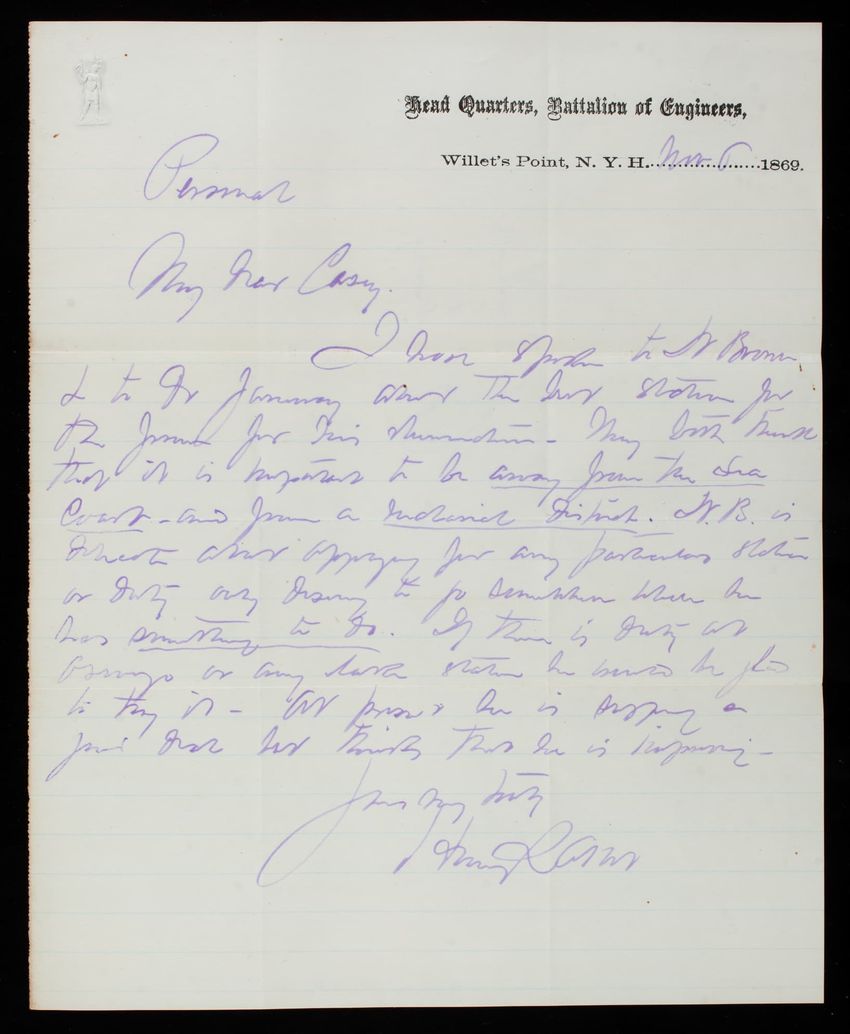 Head Quarters, Battalion of Engineers,
Willet's Point, N. Y. H. Nov 6 1869.
Personal
My dear Casey.
I have spoken to Lt Brown
& to Dr Janeway about the best station for
the former for his rheumatism - They both think
that it is important to be away from the Sea
Coast - and from a malarial District. Lt. B. is
delicate about applying for any particular station
or duty only desiring to go somewhere where he
has something to do. If there is duty at
Oswego or any lake station he would be glad
to try it - At present he is suffering a
good deal but thinks that he is improving -
Yours very truly
Henry L Abbot